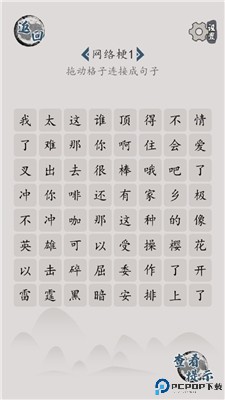 返回
设置
网络梗1
拖动格子连接成句子
我太这谁顶得不情
了难那你啊住会爱
叉出去很棒哦吧了
冲你啡还有家乡极
不冲咖那这种的像
英雄可以受操樱花
以击碎屈委作了开
雷霆黑暗安排上了
查看提示
PCPOP下载